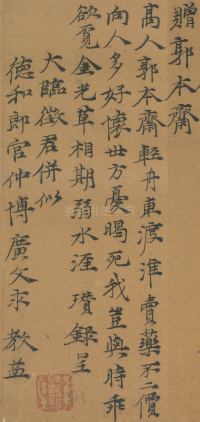 贈郭本齋
高人郭本齋輕舟東渡淮賣藥不二價
向人多好懷世方憂暍死我豈與時乖
欲覓金光草相期弱水涯瓚錄呈
大臨徵君併似
德和郎官仲博廣文求教益